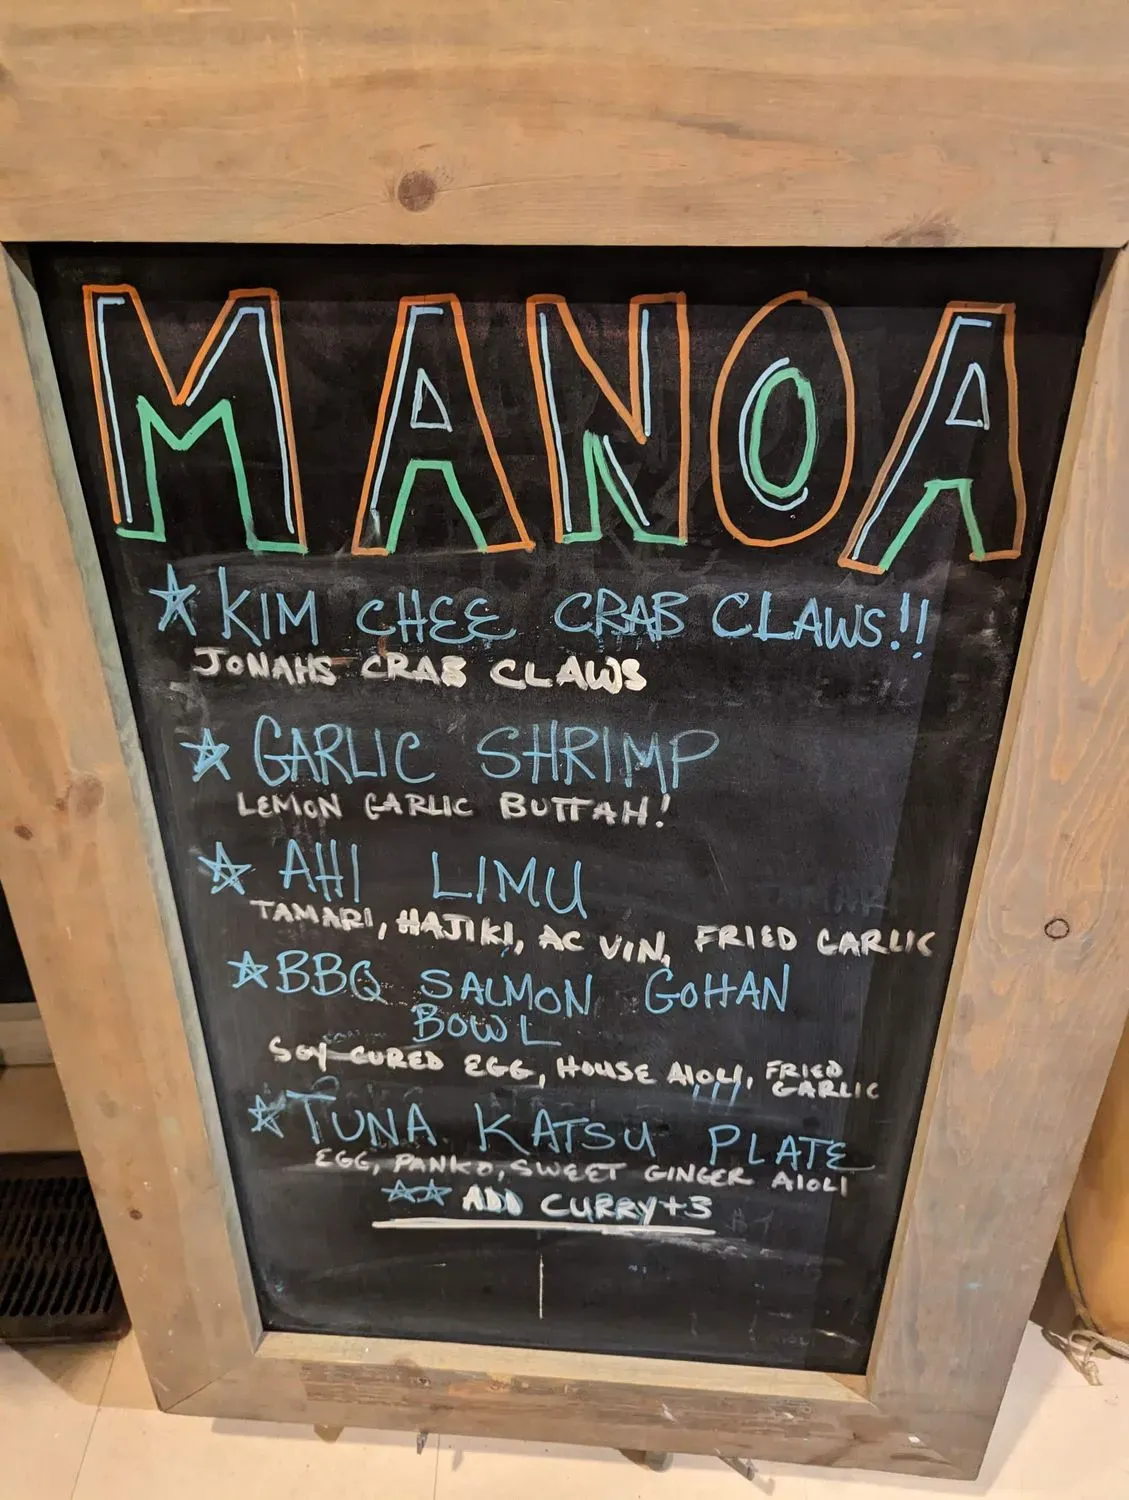 MANOA
KIM CHEE CRAB CLAWS!!
JONAHS CRAB CLAWS
GARLIC SHRIMP
LEMON GARLIC BUTTAH!
AHI LIMU
TAMARI, HAJIKI, AC VIN, FRIED GARLIC
BBQ SALMON GOHAN
BOWL
SOY-CURED EGG, HOUSE AIOLI, FRIED
GARLIC
TUNA KATSU PLATE
EGG, PANKO, SWEET GINGER AIOLI
ADD CURRY+3